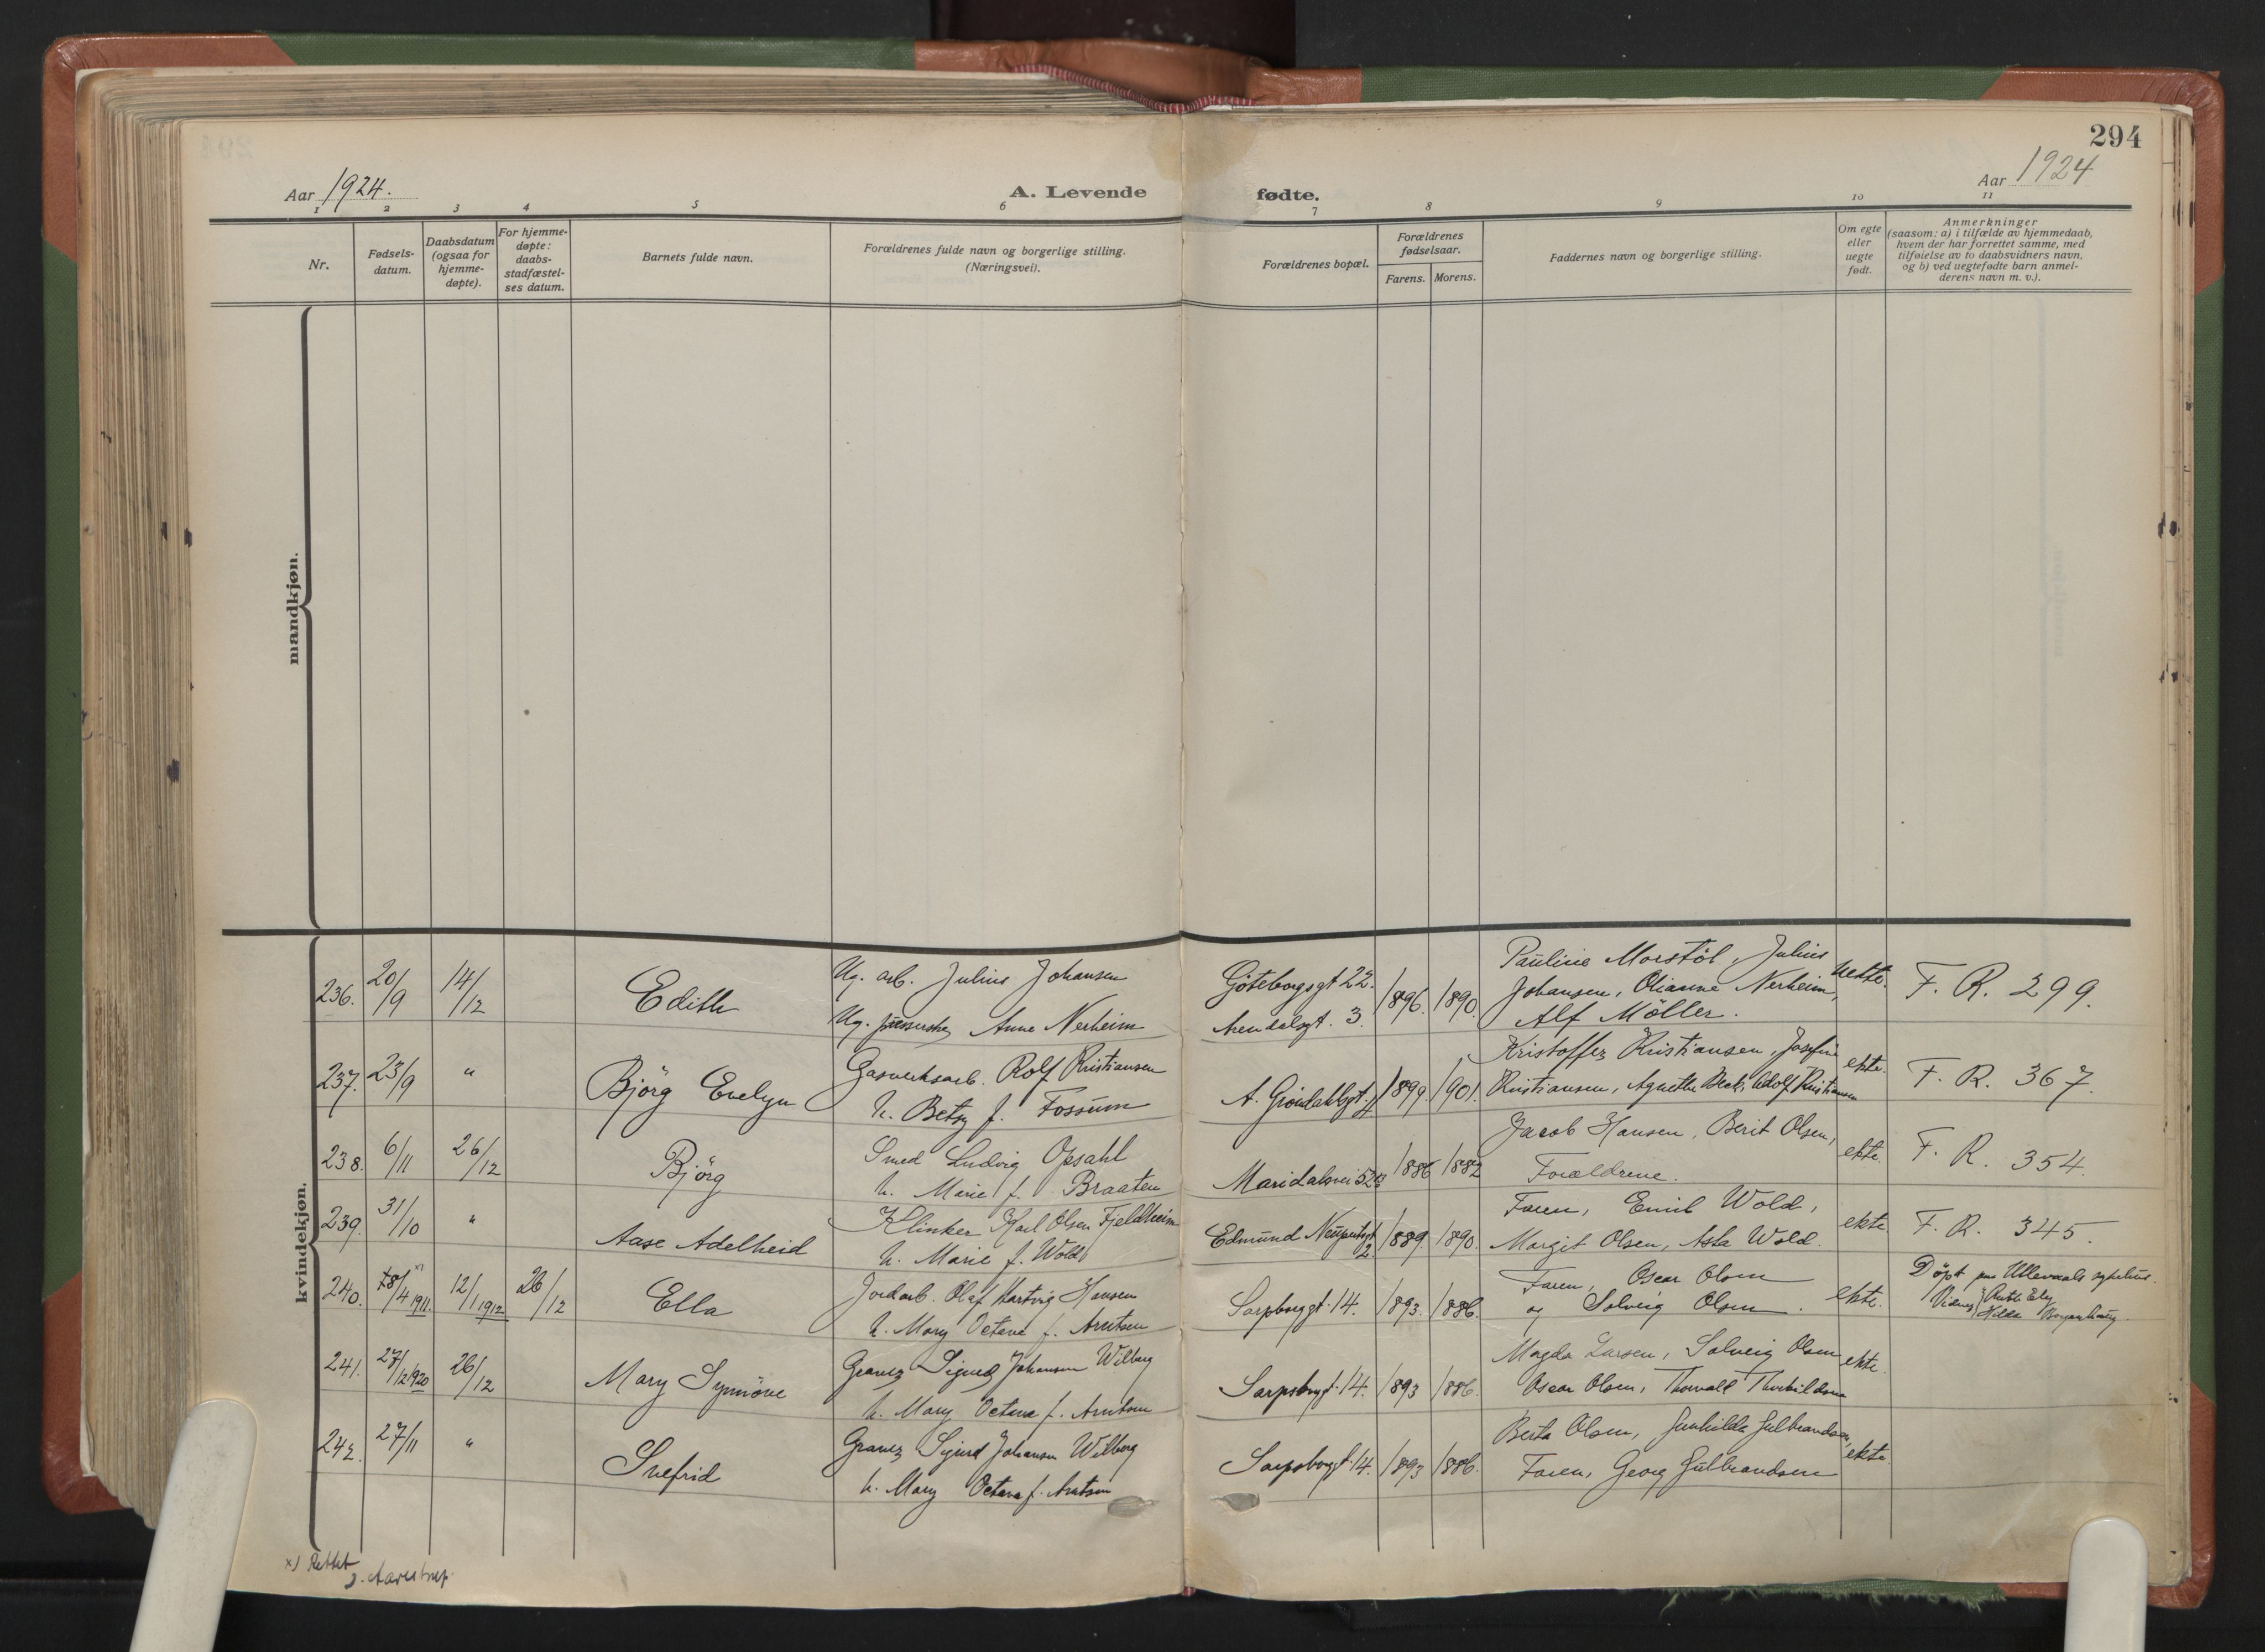 294
Aar 1924.
A. Levende fødte.
Aar 1924
1 2 3 4 5 6 7 8 9 10 11
Nr.
Fødsels-
datum.
Daabsdatum
(ogsaa for
hjemme-
døpte).
For hjemme-
døpte:
daabs-
stadfæstel-
ses datum.
Barnets fulde navn.
Forældrenes fulde navn og borgerlige stilling.
(Næringsvei).
Forældrenes bopæl.
Forældrenes
fødselsaar.
Farens. Morens.
Faddernes navn og borgerlige stilling.
Om egte
eller
uegte
født.
Anmerkninger
(saasom: a) i tilfælde av hjemmedaab,
hvem der har forrettet samme, med
tilføielse av to daabsvidners navn,
og b) ved uegtefødte barn anmel-
derens navn m. v.).
mandkjøn.
kvindekjøn.
236. 20/9 14/12 Edith
Ug. arb. Julius Johansen
Ug. Anne Nerheim
Göteborgsgt 22.
Arendalsgt. 3.
1896. 1890.
Pauline Morstöl, Julius
Johansen, Olianne Nerheim,
Alf Möller.
uekte.
F. R. 299.
237. 23/9 " Björg Evelyn
Gasverksarb. Rolf Kristiansen
h. Betzy f. Fossum
A. Gröndahlsgt.
1899. 1901.
Kristoffer Kristiansen, Josefine
Kristiansen, Agnethe Adolf Kristiansen
ekte.
F. R. 367.
238. 6/11 26/12 Björg
Smed Ludvig Opsahl
h. Marie f. Braaten
Maridalsvei
1886 1882
Jacob Hansen, Berit Olsen,
Forældrene.
ekte.
F. R. 354.
239. 31/10 " Aase Adelheid
Klinker Karl Olsen Fjeldheim
h. Marie f. Wold
Edmund Neupertsgt
2.
1889. 1890.
Faren, Emil Wold,
Margit Olsen, Asta Wold.
ekte
F. R. 345.
240. 18/4 1911 x) 12/1 1912 26/12 Ella
Jordarb. Olaf Hartvig Hansen
h. Mary Octava f. Arntsen
Sarpsborggt. 14.
1893. 1886.
Faren, Oscar Olsen
og Solveig Olsen.
ekte.
Döpt paa Ullevaals sykehus.
Vidner Ruth
Hilda
241. 27/12 1920 26/12 Mary Synnöve
Graver Sigurd Johansen Wilberg
h. Mary Octava f. Arntsen
Sarpsborggt. 14.
1893 1886.
Magda Larsen, Solveig Olsen
Oscar Olsen, Thorvald
ekte.
242. 27/11 " Snefrid
Graver Sigurd Johansen Wilberg
h. Mary Octava f. Arntsen
Sarpsborggt. 14.
1893 1886.
Berta Olsen, Gunhilda Gulbrandsen,
Faren, Georg Gulbrandsen
ekte.
x) Rettet
J. Aarestrup.